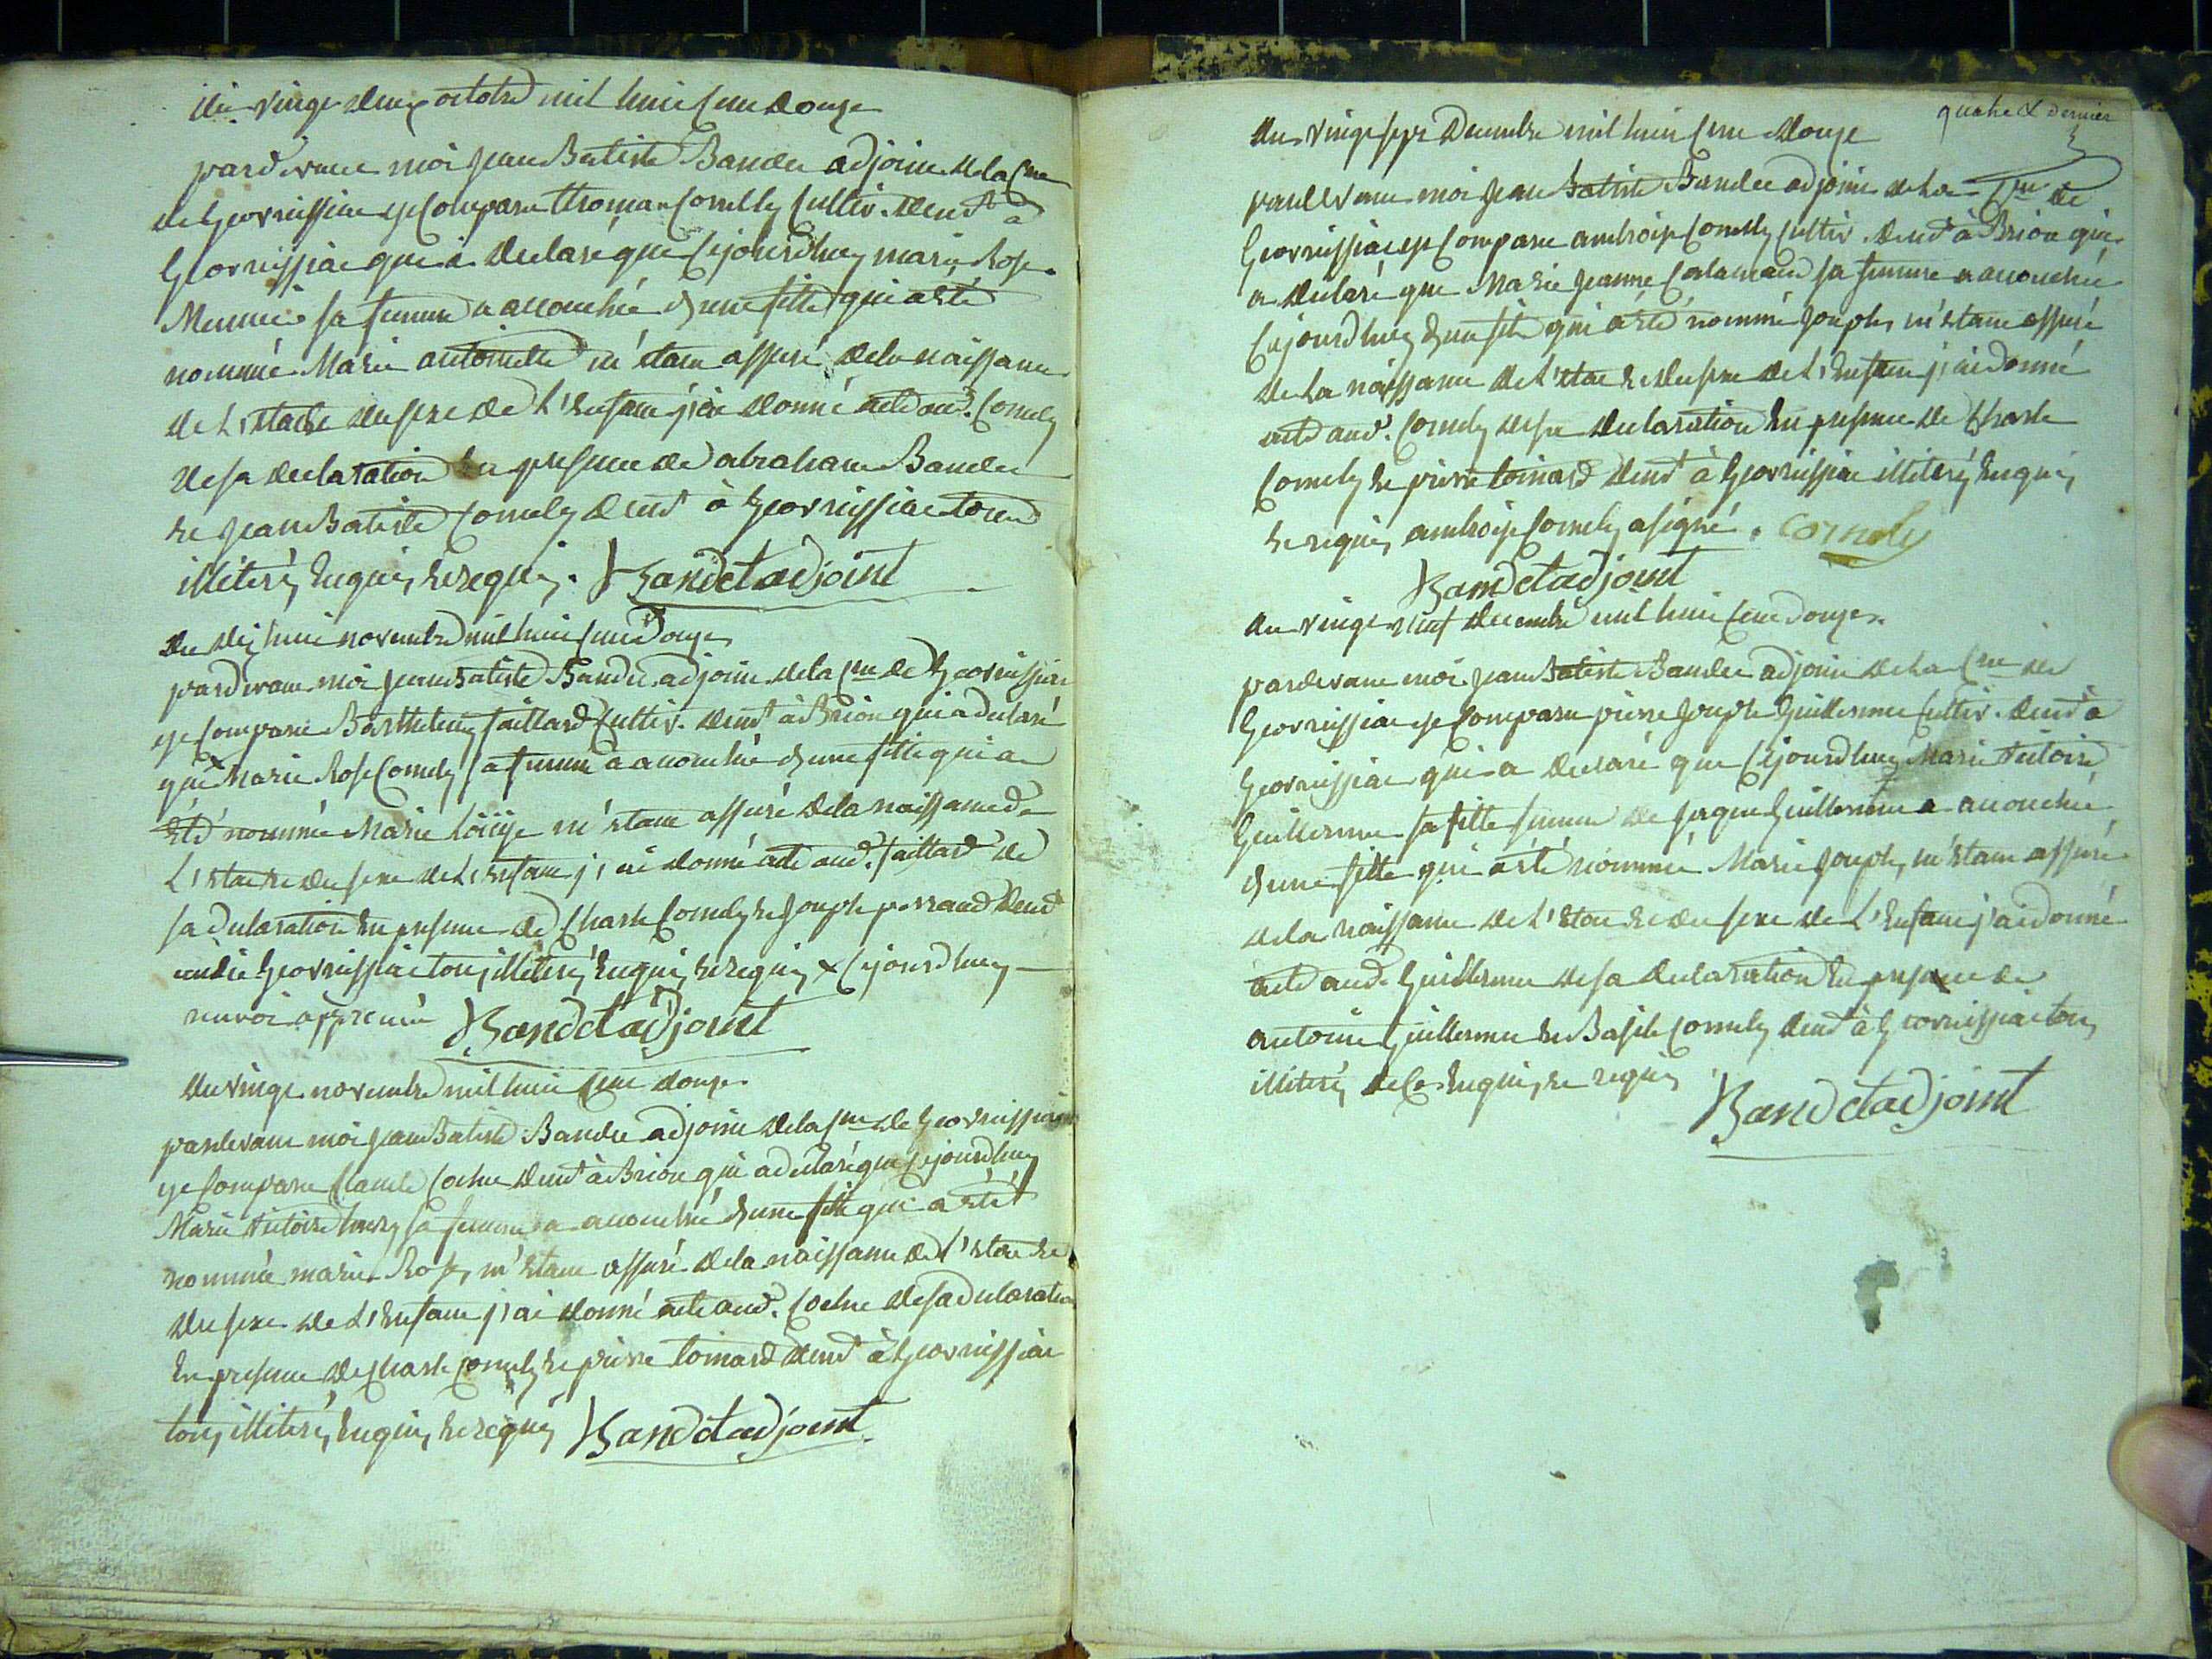 du vingt deux octobre mil huit cent douze
pardevant moi jean Batiste Baudet adjoint de la Cne
de Geovreissiat est Comparu thomas Comely Cultiv. demt à
Geovreissiat qui a declaré que Cejourdhuy marie Rose
sa femme a accouchée d'une fille qui a été
nommé Marie antoinette m'étant assuré de la naissance
de L'état et du sexe de L'Enfant j'ai donné acte aud. Comely
de sa declaration En presence de abraham Baudet
et jean Batiste Comely demt à Geovreissiat tous
illiterés Enquis et requis. Baudet adjoint
du dix huit novembre mil huit cent douze
pardevant moi jean Batiste Baudet adjoint de la Cne de Geovreissiat
est Comparu Barthelemy Cultiv. demt à Brion qui a declaré
que x Marie Rose Comely sa femme a accouchée d'une fille qui a
Eté nommée Marie Loüise m'étant assuré de la naissance de
L'état et du sexe de L'enfant j'ai donné acte aud. de
sa declaration En presence de Charle Comely et joseph perraud demt
audit Geovreissiat tous illiterés Enquis et requis x Cejourdhuy
renvoi approuvé Baudet adjoint
du vingt novembre mil huit cent douze
pardevant moi jean Batiste Baudet adjoint de la Cne de Geovreissiat
est Comparu Claude Cochet demt à Brion qui a declaré que Cejourdhuy
Marie victoire sa femme a accouchée d'une fille qui a été
nommée marie Rose, m'étant assuré de la naissance de L'état et
du sexe de L'Enfant j'ai donné acte aud. Cochet de sa declaration
En presence de Charle Comely et pierre toinard demt à Geovreissiat
tous illiterés Enquis et requis Baudet adjoint
quatre & dernier
du vingt sept Decembre mil huit cent douze
pardevant moi jean Batiste Baudet adjoint de La Cne de
Geovreissiat est Comparu ambroise Comely Cultiv. demt à Brion qui
a declaré que Marie jeanne sa femme a accouchée
Cejourdhuy d'un fils qui a été nommé joseph, m'étant assuré
de La naissance de L'état et du sexe de L'Enfant j'ai donné
acte aud. Comely de sa declaration En presence de Charle
Comely et pierre toinard demt à Geovreissiat illiterés Enquis
et requis, ambroise Comely a signé. Comely
Baudet adjoint
du vingt neuf decembre mil huit cent douze
pardevant moi jean Batiste Baudet adjoint de La Cne de
Geovreissiat est Comparu pierre joseph Guillermet Cultiv. demt à
Geovreissiat qui a declaré que Cejourdhuy Marie victoire
Guillermet sa fille femme de jaque Guillermet a accouchée
d'une fille qui a été nommée Marie joseph, m'étant assuré
de la naissance de L'état et du sexe de L'Enfant j'ai donné
acte aud. Guillermet de sa declaration En presence de
antoine Guillermet et Basile Comely demt à Geovreissiat tous
illiterés de Ce Enquis et requis
Baudet adjoint